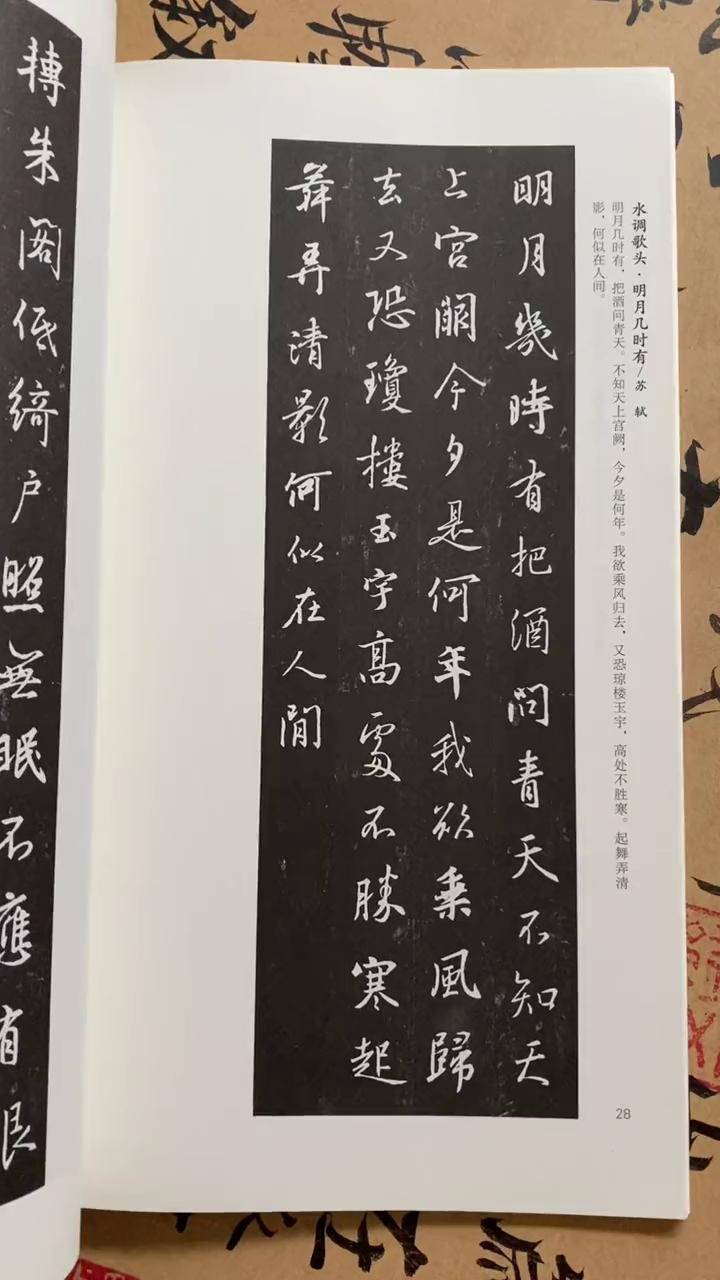 水调歌头·明月几时有/苏 轼
明月几时有，把酒问青天。不知天上宫阙，今夕是何年。我欲乘风归去，又恐琼楼玉宇，高处不胜寒。起舞弄清
影，何似在人间。
明月幾時有把酒問青天不知天
上宮闕今夕是何年我欲乘風歸
去又恐瓊樓玉宇高處不勝寒起
舞弄清影何似在人間
28
轉朱閣低綺户照無眠不應有恨